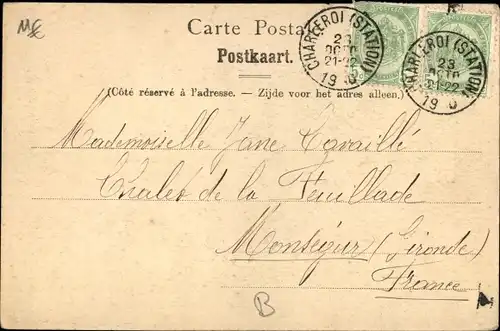 M€
Carte Postale
Postkaart.
CHARLEROI (STATION)
23
OCTO
21-22
19 0
CHARLEROI (STATION)
23
OCTO
21-22
19 0
(Côté réservé à l'adresse. — Zijde voor het adres alleen.)
Mademoiselle Jane
Chalet de la Feuillade
Monségur (Gironde)
France
B